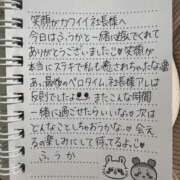 笑顔がカワイイ社長様へ
今日はふうかと一緒に遊んでくれて
ありがとうございました♡笑顔が
本当にステキで私も癒されちゃったな
あ、最後のベロタイム社長様アレは
反則でしたよ またこんな時間
一緒に過ごせたらいいな 次は
どんなことしちゃおうかな 会え
るの楽しみにして待てるよ
ふうか